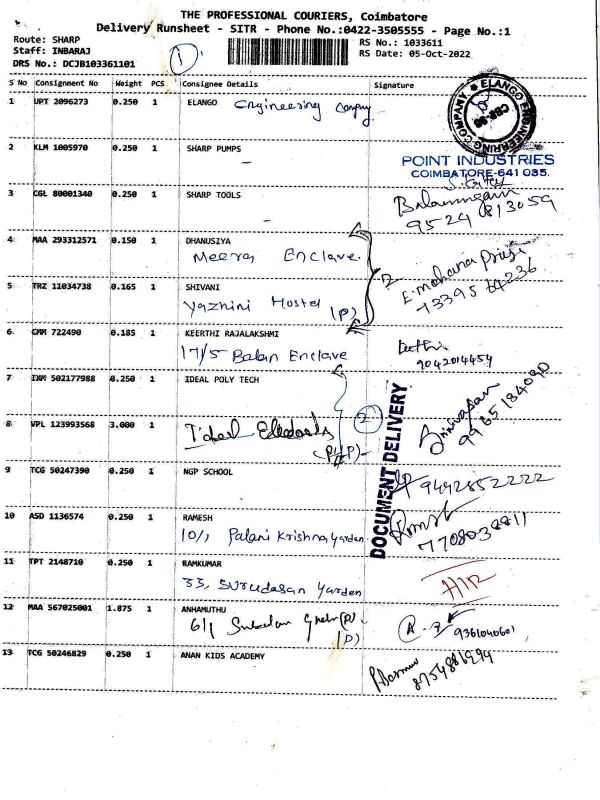 THE PROFESSIONAL COURIERS, Coimbatore
Delivery Runsheet - SITR - Phone No.:0422-3505555 - Page No.:1
Route: SHARP
Staff: INBARAJ
DRS No.: DCJB103361101
1
RS No.: 1033611
RS Date: 05-Oct-2022
S No Consignment No Weight PCS Consignee Details Signature
1 UPT 2096273 0.250 1 ELANGO Engineering Company
ELANGO ENGINEERING COMPANY
2 KLM 1005970 0.250 1 SHARP PUMPS
-
POINT INDUSTRIES
COIMBATORE-641 035.
3 CGL 80001340 0.250 1 SHARP TOOLS
-
Balamurugan
95-24 813059
4 MAA 293312571 0.150 1 DHANUSIYA
Meera Enclave
5 TRZ 11034738 0.165 1 SHIVANI
Yazhini Hostel (P)
E. Mohana Priya
73395 64236
6 CMM 722490 0.185 1 KEERTHI RAJALAKSHMI
17/5 Balan Enclave
9042014454
7 IXM 502177988 0.250 1 IDEAL POLY TECH
2
8 VPL 123993568 3.000 1
Ideal
Srinivasan
9965184090
DOCUMENT DELIVERY
9 TCG 50247390 0.250 1 NGP SCHOOL
9492852222
10 ASD 1136574 0.250 1 RAMESH
10/1 Palani Krishna Garden
11 TPT 2148710 0.250 1 RAMKUMAR
33, Surudasan Garden
12 MAA 567025001 1.875 1 ANHAMUTHU
6/1
(P)
9361040601
13 TCG 50246829 0.250 1 ANAN KIDS ACADEMY
8754881294